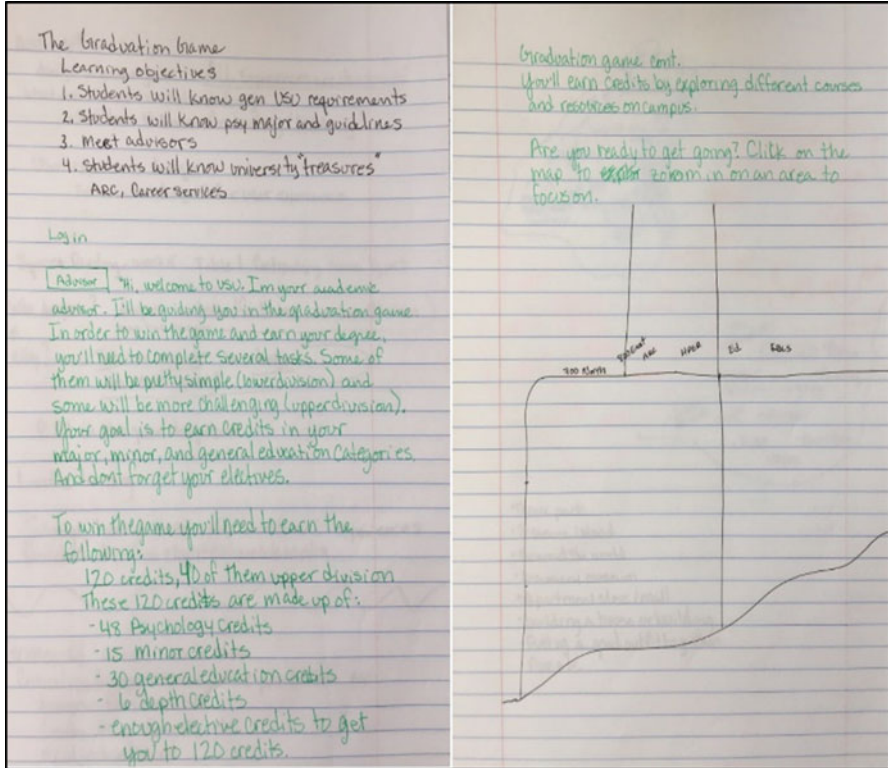 The Graduation Game
Learning objectives
1. Students will know gen USU requirements
2. Students will know psy major and guidelines
3. Meet advisors
4. Students will know university "treasures"
ARC, Career Services
Login
Advisor "Hi, welcome to USU. Im your academic
advisor. I'll be guiding you in the graduation game.
In order to win the game and earn your degree,
you'll need to complete several tasks. Some of
them will be pretty simple (lower division) and
some will be more challenging (upper division).
Your goal is to earn credits in your
major, minor, and general education categories.
And dont forget your electives.
To win the game you'll need to earn the
following:
120 credits, 40 of them upper division
These 120 credits are made up of:
- 48 Psychology credits
- 15 minor credits
- 30 general education credits
- 6 depth credits
- enough elective credits to get
you to 120 credits.
Graduation game cont.
You'll earn credits by exploring different courses
and resources on campus.
Are you ready to get going? Click on the
map to zoom in on an area to
focus on.
700 North
ARC
HPER
Ed